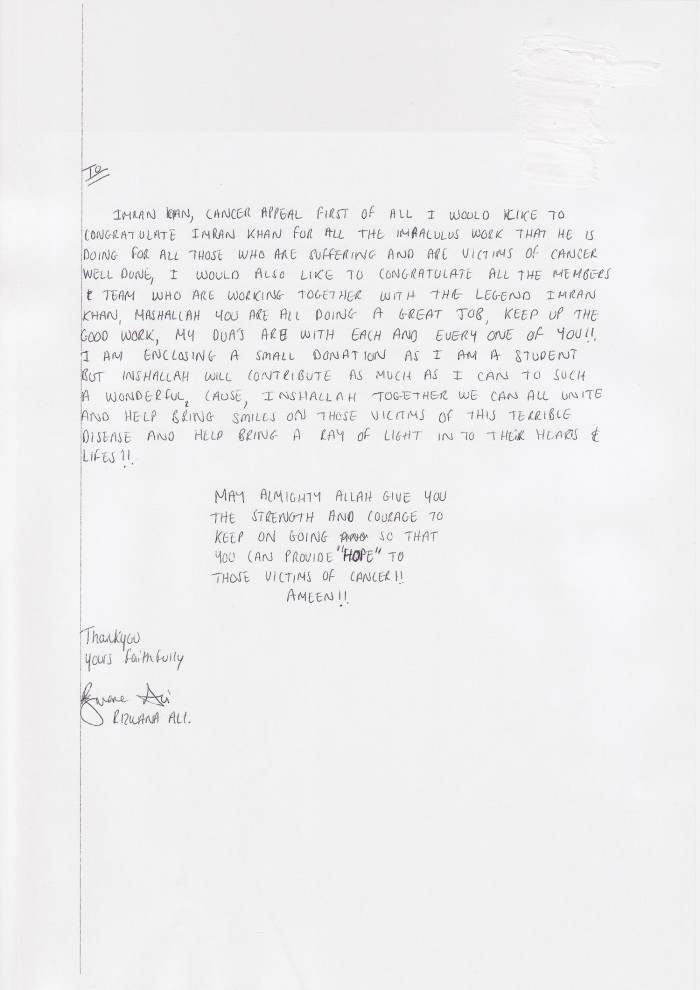 To
IMRAN KHAN, CANCER APPEAL FIRST OF ALL I WOULD LIKE TO
CONGRATULATE IMRAN KHAN FOR ALL THE IMRACULUS WORK THAT HE IS
DOING FOR ALL THOSE WHO ARE SUFFERING AND ARE VICTIMS OF CANCER
WELL DONE, I WOULD ALSO LIKE TO CONGRATULATE ALL THE MEMBERS
& TEAM WHO ARE WORKING TOGETHER WITH THE LEGEND IMRAN
KHAN, MASHALLAH YOU ARE ALL DOING A GREAT JOB, KEEP UP THE
GOOD WORK, MY DUA'S ARE WITH EACH AND EVERY ONE OF YOU!!
I AM ENCLOSING A SMALL DONATION AS I AM A STUDENT
BUT INSHALLAH WILL CONTRIBUTE AS MUCH AS I CAN TO SUCH
A WONDERFUL, CAUSE, INSHALLAH TOGETHER WE CAN ALL UNITE
AND HELP BRING SMILES ON THOSE VICTIMS OF THIS TERRIBLE
DISEASE AND HELP BRING A RAY OF LIGHT IN TO THEIR HEARTS &
LIFES!!
MAY ALMIGHTY ALLAH GIVE YOU
THE STRENGTH AND COURAGE TO
KEEP ON GOING SO THAT
YOU CAN PROVIDE "HOPE" TO
THOSE VICTIMS OF CANCER!!
AMEEN!!
Thankyou
yours faithfully
Ali
RIZWANA ALI.